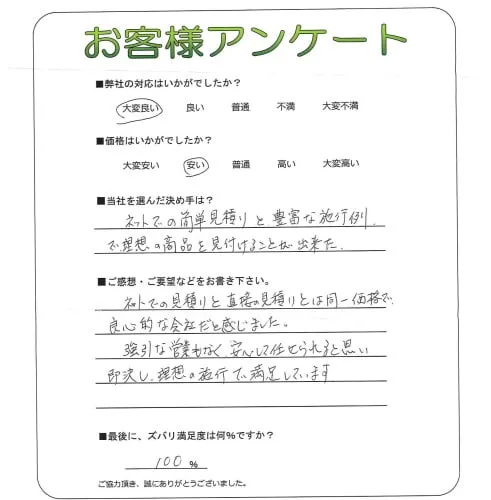 お客様アンケート
■弊社の対応はいかがでしたか？
大変良い 良い 普通 不満 大変不満
■価格はいかがでしたか？
大変安い 安い 普通 高い 大変高い
■当社を選んだ決め手は？
ネットでの簡単見積りと豊富な施行例
で理想の商品を見付けることが出来た。
■ご感想・ご要望などをお書き下さい。
ネットでの見積りと直接の見積りとは同一価格で、
良心的な会社だと感じました。
強引な営業もなく安心して任せられると思い
即決し、理想の施行で満足しています
■最後に、ズバリ満足度は何%ですか？
100 %
ご協力頂き、誠にありがとうございました。